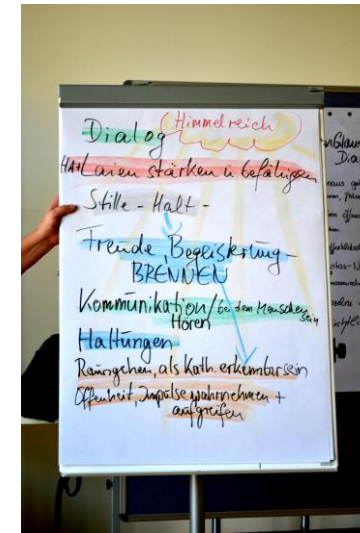 Himmelreich
Dialog
HA+Laien stärken u. befähigen
Stille - Halt -
Freude, Begeisterung -
BRENNEN
Kommunikation / bei dem Menschen sein
Hören
Haltungen
Rausgehen, als Kath. erkennbar sein
Offenheit, Impulse wahrnehmen +
aufgreifen
Dia